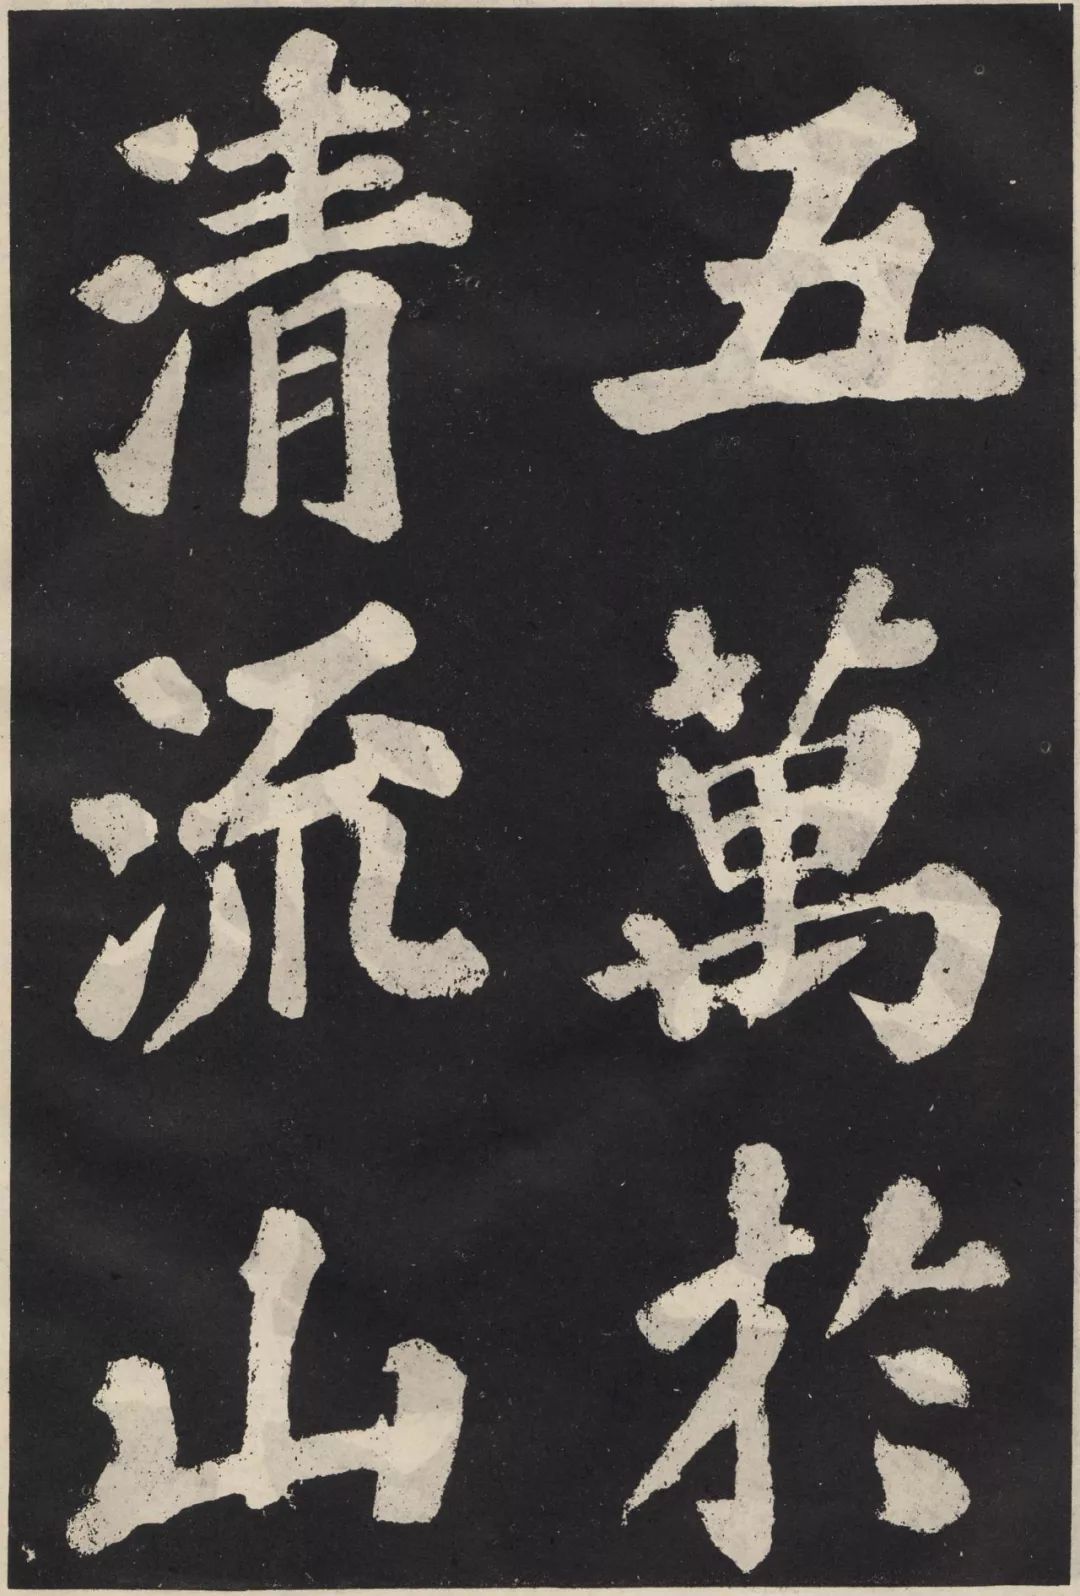 五萬於
清流山